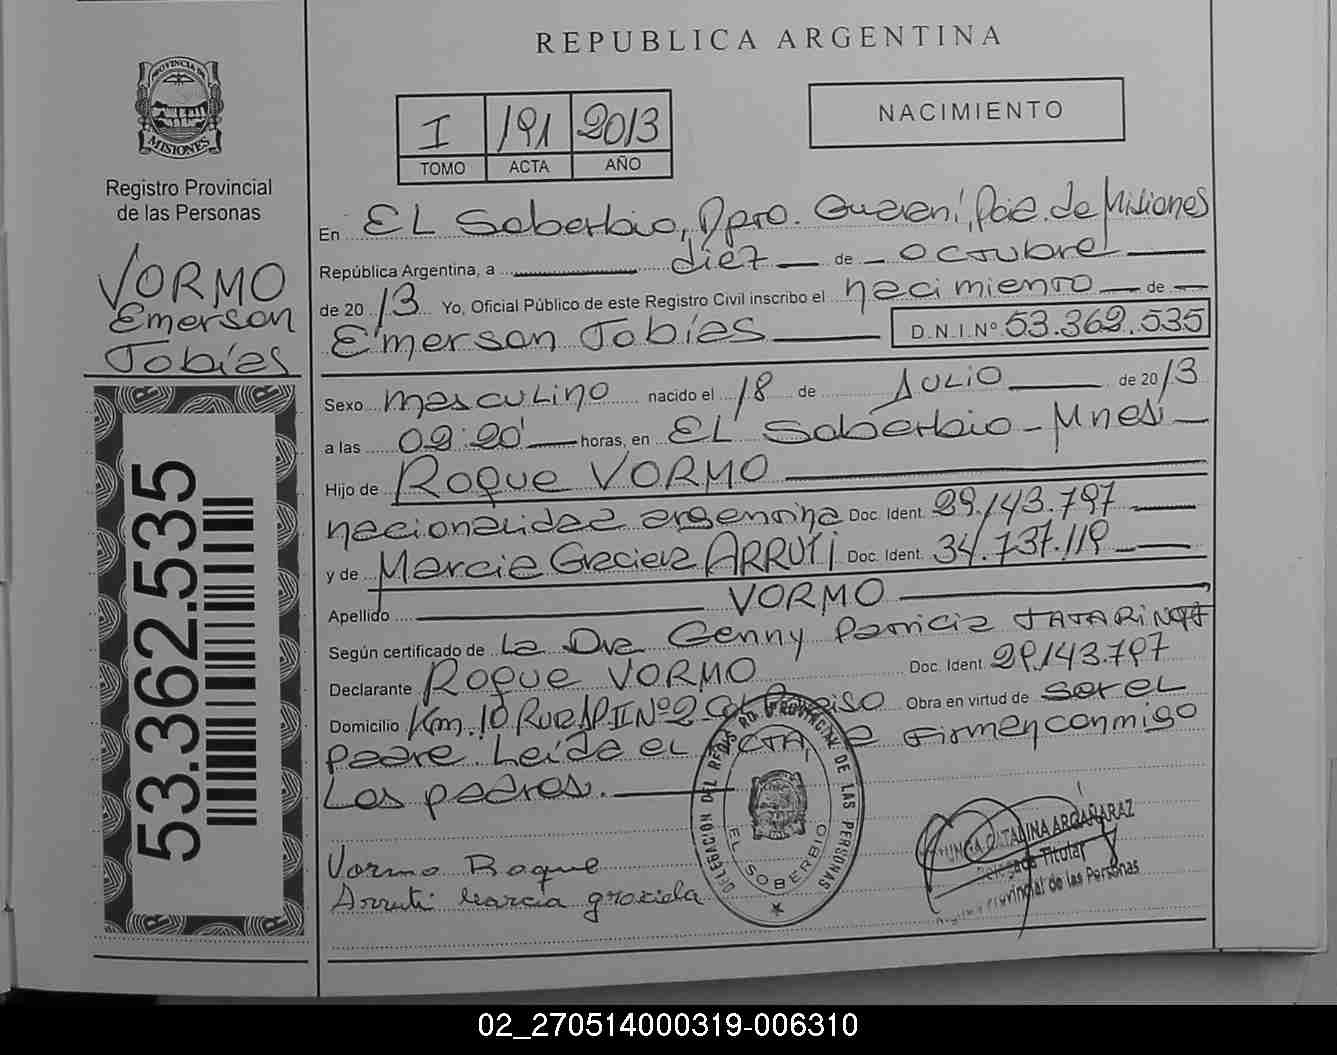 REPUBLICA ARGENTINA
PROVINCIA DE
MISIONES
Registro Provincial
de las Personas
VORMO
Emerson
Tobías
53.362.535
I 191 2013
TOMO ACTA AÑO
NACIMIENTO
En EL Soberbio, Dpto. Guaraní, Pcia. de Misiones
República Argentina, a diez de octubre
de 2013 Yo, Oficial Público de este Registro Civil inscribo el nacimiento de
Emerson Tobías D.N.I. Nº 53.362.535
Sexo masculino nacido el 18 de JULIO de 2013
a las 02:20 horas, en EL Soberbio - Mnes
Hijo de Roque VORMO
nacionalidad argentina Doc. Ident. 29.143.797
y de Marcia Graciela ARRUTI Doc. Ident. 34.737.119
Apellido VORMO
Según certificado de La Dra Genny Patricia
Declarante Roque VORMO Doc. Ident. 29.143.797
Domicilio Km. 10 Ruta Nº 2 Obra en virtud de ser el
padre. Leída el ACTA, la firman conmigo
Los padres.
Vormo Roque
Arruti Marcia graciela
DELEGACIÓN DEL REGISTRO PROVINCIAL DE LAS PERSONAS
EL SOBERBIO
CATALINA ARGAÑARAZ
Delegada Titular
Provincial de las Personas
02_270514000319-006310